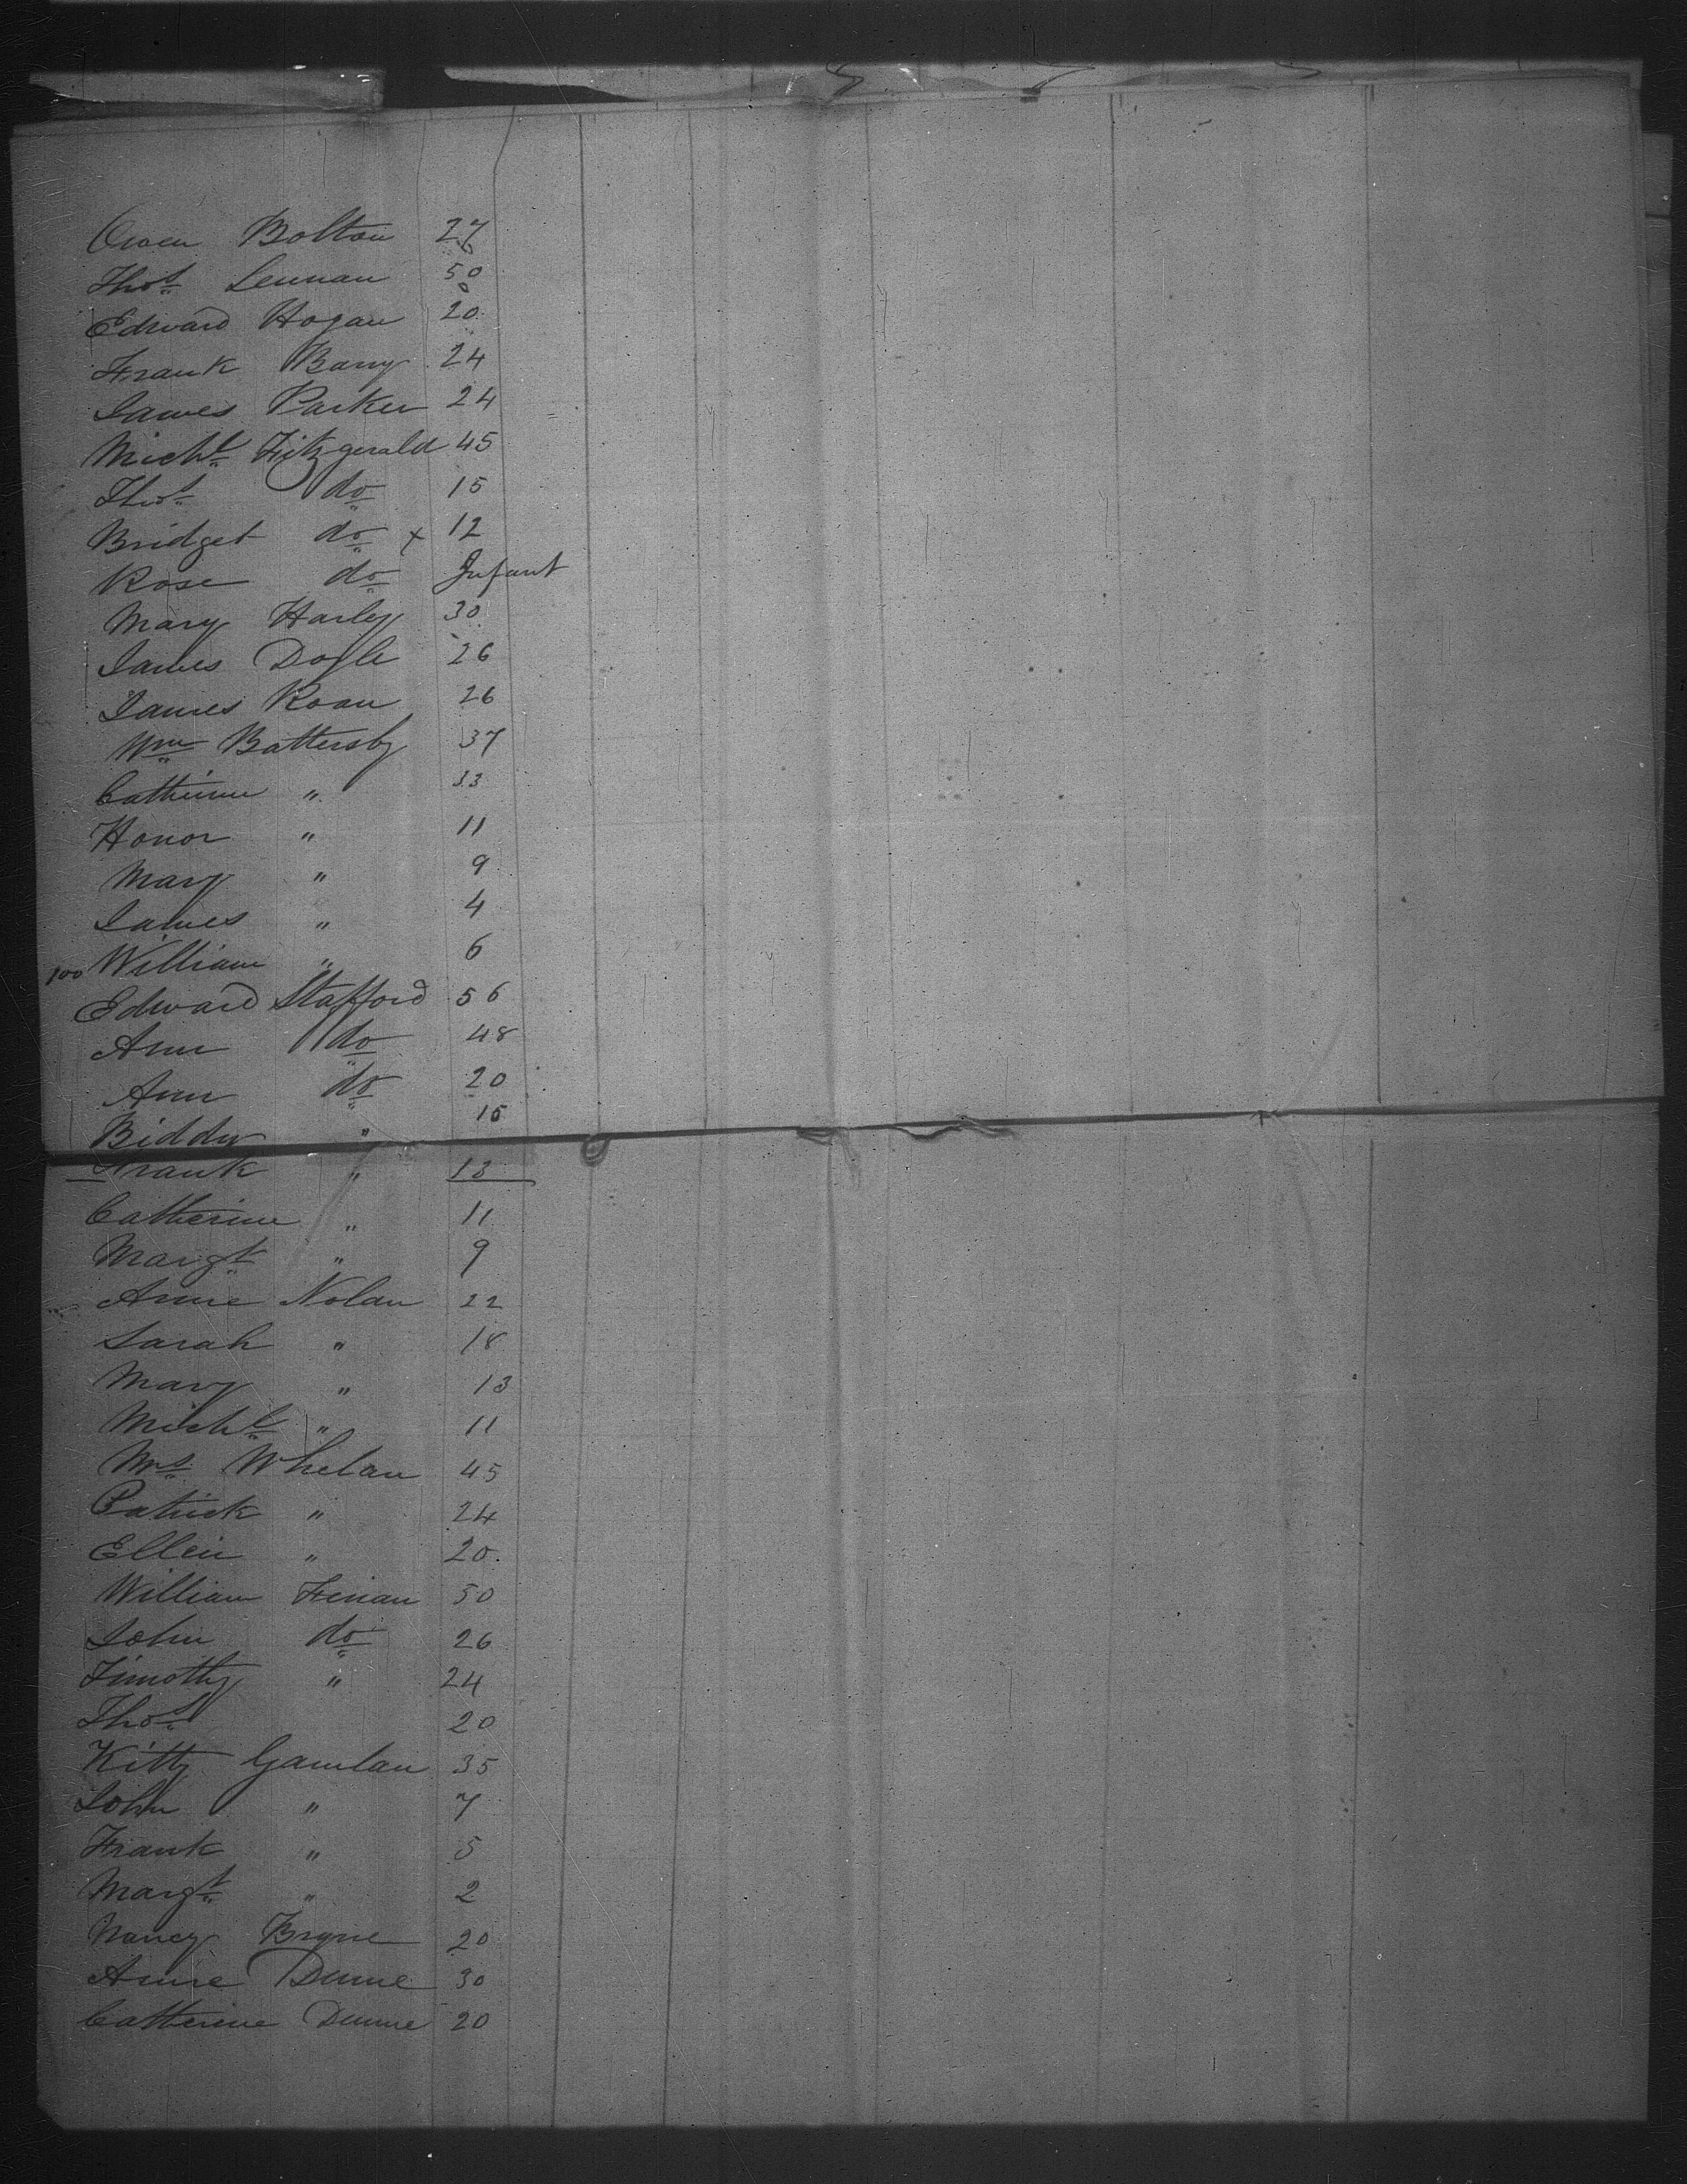 Owen Bolton 27
Thos Lennan 50
Edward Hogan 20
Frank Barry 24
James Parker 24
Michl Fitzgerald 45
Thos do 15
Bridget do x 12
Rose do Infant
Mary Harley 30
James Doyle 26
James Roan 26
Wm Battersby 37
Catherine " 33
Honor " 11
Mary " 9
James " 4
100 William " 6
Edward Stafford 56
Ann do 48
Ann do 20
Biddy " 15
Frank " 13
Catherine " 11
Margt " 9
Annie Nolan 22
Sarah " 18
Mary " 13
Michl " 11
Mrs Whelan 45
Patrick " 24
Ellen " 20
William Finan 50
John do 26
Timothy " 24
Thos 20
Kitty 35
John " 7
Frank " 5
Margt " 2
Nancy Bryne 20
Annie Dunne 30
Catherine Dunne 20